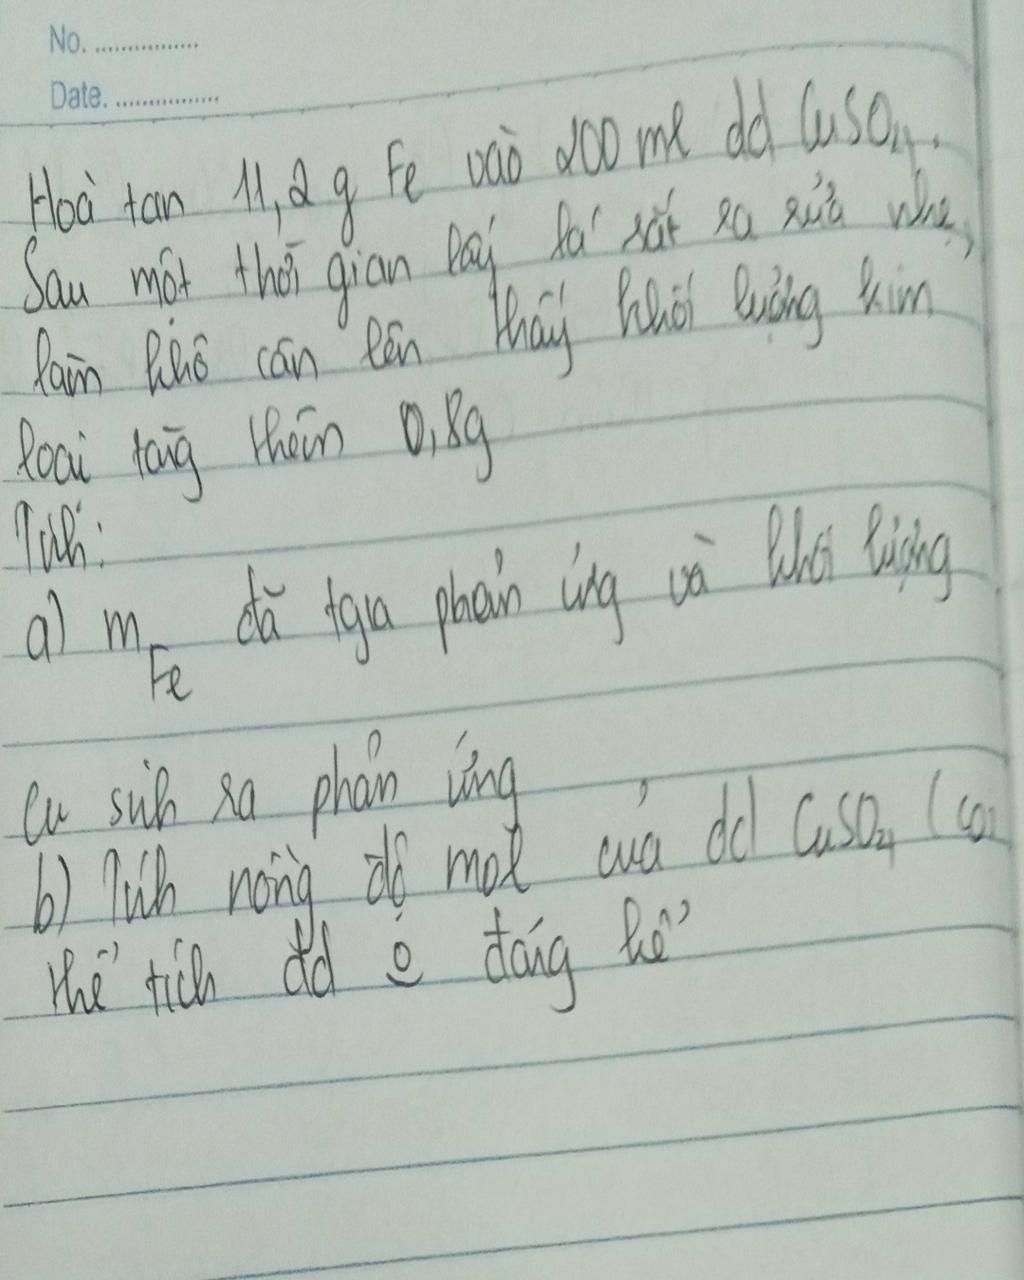 No. ................
Date. ................
Hoà tan 11,2 g Fe vào 200 ml dd CuSO4.
Sau một thời gian lấy lá sắt ra rửa nhẹ,
làm khô cân lên thấy khối lượng kim
loại tăng thêm 0,8g
Tính:
a) mFe đã tgia phản ứng và khối lượng
Cu sinh ra phản ứng
b) Tính nồng độ mol của dd CuSO4 (coi
thể tích dd đáng kể